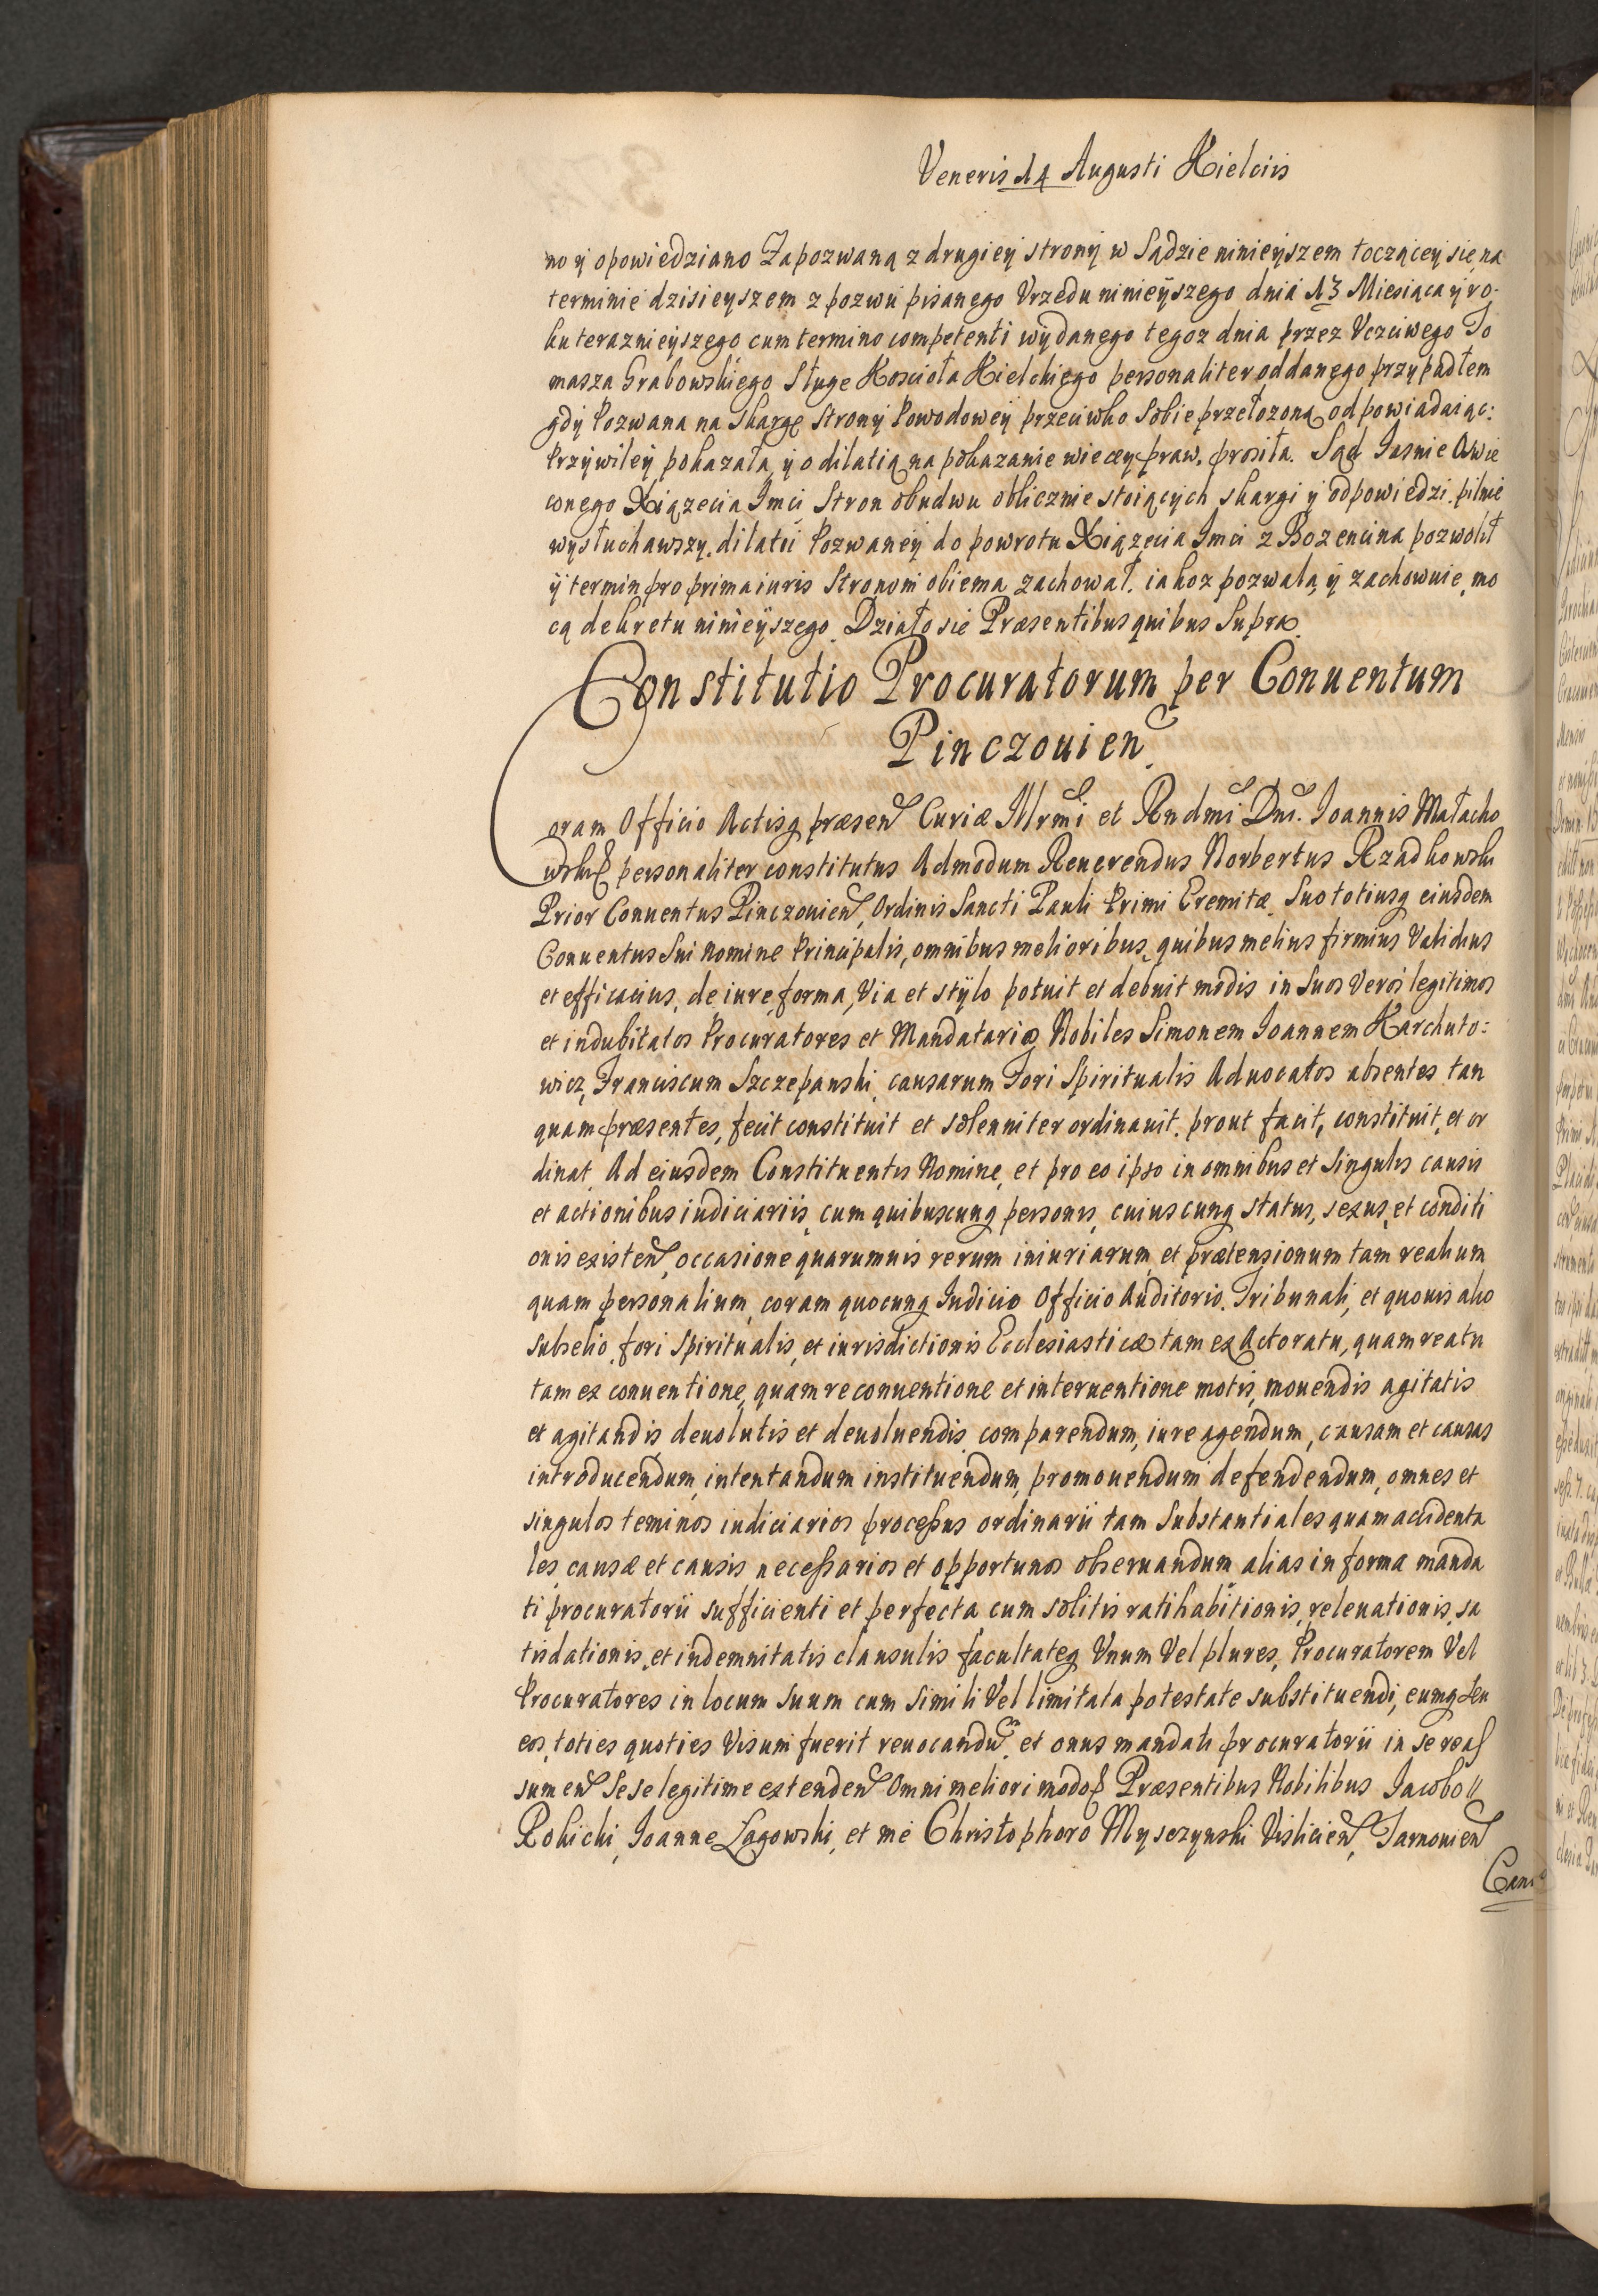 Veneris 14 Augusti Kielciis
no y opowiedziano Zapozwaną z drugiey strony w Sądzie ninieyszem toczącey się, na
terminie dzisieyszem z pozwu pisanego Vrzędu ninieyszego dnia 13 Miesiąca y ro-
ku teraznieyszego cum termino competenti wydanego tegoz dnia przez Vczciwego To
masza Grabowskiego Sługe Koscioła Kielckiego personaliter oddanego przypadłem
gdy Pozwana na Skargę Strony Powodowey przeciwko Sobie przełozoną odpowiadaiąc:
Przywiley pokazała, y o dilatią na pokazanie wiecey praw, prosiła. Sąd Iasnie Oswie
conego Xiązecia Imci Stron obudwu oblicznie stoiących skargi y odpowiedzi pilnie
wysłuchawszy, dilatii Pozwaney do powrotu Xiązecia Imci z Bozencina pozwolił
y termin pro prima iuris Stronom obiema zachował. iakoz pozwala, y zachowuie, mo
cą dekretu ninieyszego. Działo sie Præsentibus quibus Supra.
Constitutio Procuratorum per Conuentum
Pinczouien
Coram Officio Actisq præsen Curiæ Illrmi et Rndmi Dni. Ioannis Małacho
wski personaliter constitutus Admodum Reuerendus Norbertus Rzadkowski
Prior Conuentus Pinczouien, Ordinis Sancti Pauli Primi Eremitæ, Suo totiusq eiusdem
Conuentus Sui nomine Principalis, omnibus melioribus, quibus melius firmius Validius
et efficacius, de iure, forma, Via et stylo potuit et debuit modis in Suos Veros legitimos
et indubitatos Procuratores et Mandatarios Nobiles Simonem Ioannem Karchuto=
wicz, Franciscum Szczepanski, causarum Fori Spiritualis Aduocatos absentes tan
quam præsentes, fecit constituit et solenniter ordinauit. prout facit, constituit, et or
dinat. Ad eiusdem Constituentis Nomine, et pro eo ipso in omnibus et Singulis causis
et actionibus iudiciariis, cum quibuscunq personis, cuiuscunq status, sexus, et conditi
onis existen, occasione quarumuis rerum iniuriarum, et prætensionum tam realium
quam personalium, coram quocunq Iudicio Officio Auditorio. Tribunali, et quouis alio
subselio, fori Spiritualis, et iurisdictionis Ecclesiasticæ tam ex Actoratu, quam reatu
tam ex conuentione, quam reconuentione et interuentione motis, mouendis agitatis
et agitandis, deuolutis et deuoluendis, comparendum, iure agendum, causam et causas
introducendum, intentandum instituendum, promouendum defendendum, omnes et
singulos teminos iudiciarios processus ordinarii tam Substantiales quam accidenta
les, causæ et causis necessarios et opportunos obseruandum alias in forma manda
ti procuratorii sufficienti et perfecta cum solitis ratihabitionis, releuationis, sa
tisdationis, et indemnitatis clausulis facultateq Vnum Vel plures, Procuratorem Vel
Procuratores in locum suum cum Simili Vel limitata potestate substituendi, eumq seu
eos, toties quoties Visum fuerit reuocandum et onus mandati procuratorii in se reas
sumen Sese legitime extenden Omni meliori modo Præsentibus Nobilibus Iacobo
Rokicki, Ioanne Łagowski, et me Christophoro Mysczynski Vislicien, Tarnouien
Cano